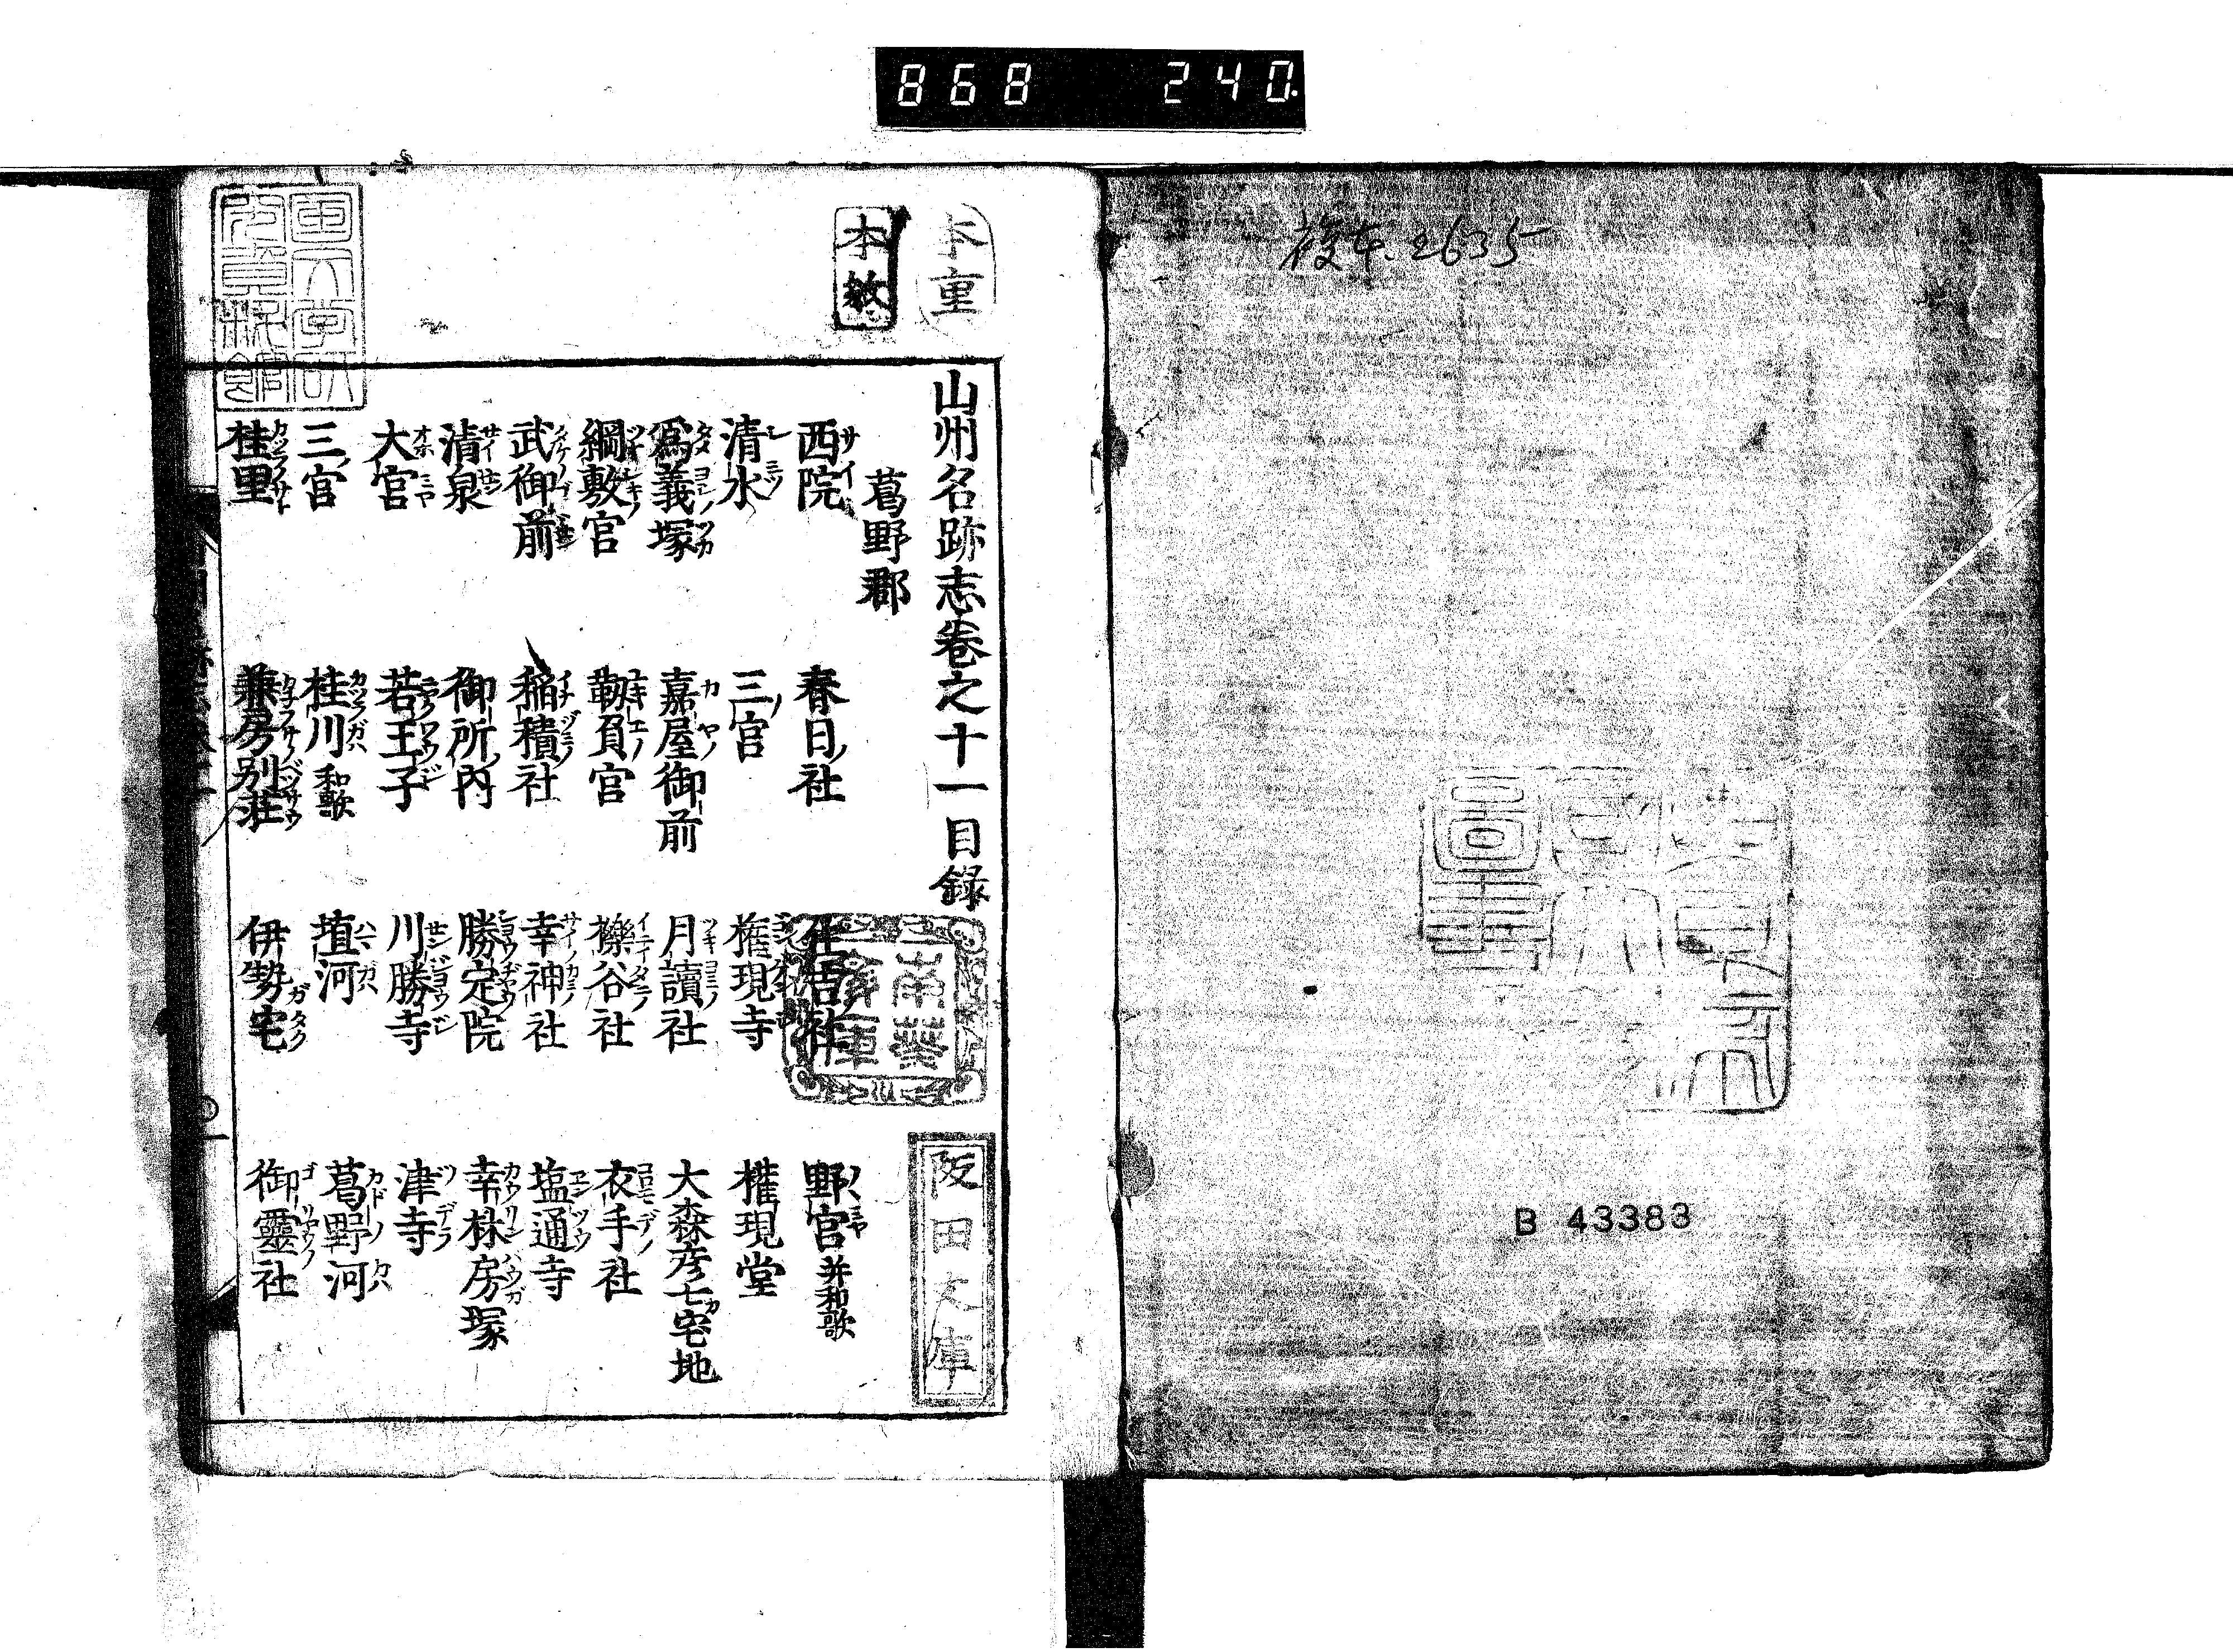 868 240
複本.2635
B 43383
本重
本教
山州名跡志巻之十一目録
葛野郡
西院 春日社 住吉社 野宮并和歌
清水 三宮 権現寺 権現堂
為義塚 嘉屋御前 月讀社 大森彦七宅地
綱敷宮 靭負宮 櫟谷社 衣手社
武御前 稲積社 幸神社 塩通寺
清泉 御所内 勝定院 幸林房塚
大宮 若王子 川勝寺 津寺
三宮 桂川和歌 埴河 葛野河
桂里 兼房別荘 伊勢宅 御靈社
南葵文庫
阪田文庫